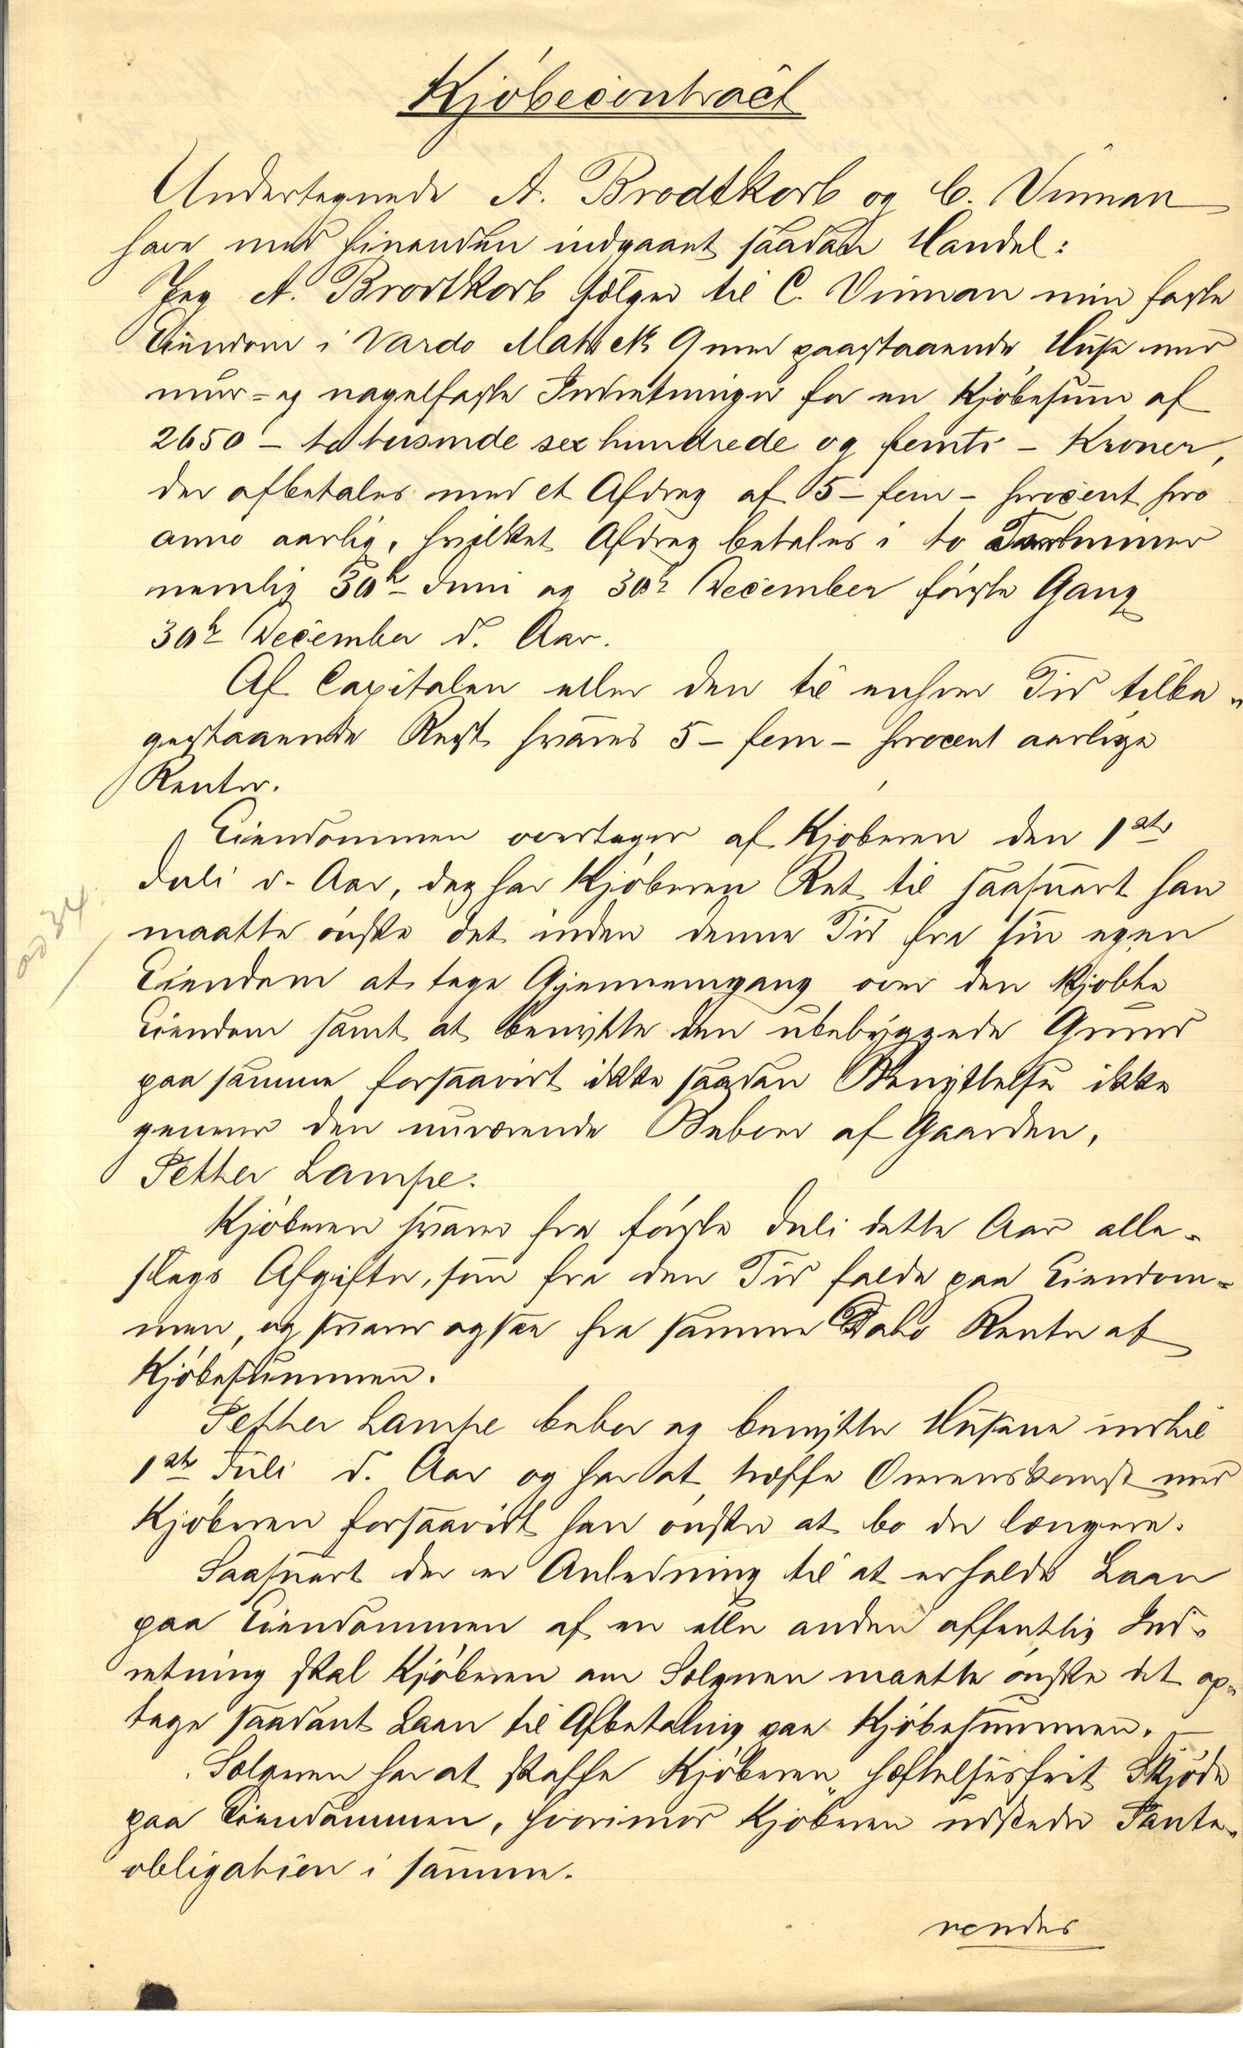 Kjöbecontract
Undertegnede A. Brodtkorb og C. Vinman
have med hinanden indgaaet saadan Handel:
Jeg A. Brodtkorb sælger til C. Vinman min faste
Eiendom i Vardo Matr № 9 med paastaaende Huse med
mur- og nagelfaste Indretninger for en Kjöbesum af
2650 - to tusinde sex hundrede og femti - Kroner,
der afbetales med et Afdrag af 5 - fem - procent pro
anno aarlig, hvilket Afdrag betales i to Terminer
nemlig 30te Juni og 30te December förste Gang
30te December d. Aar.
Af Capitalen eller den til enhver Tid tilba-
gestaaende Rest svares 5 - fem - procent aarlige
Renter.
Eiendommen overtages af Kjöberen den 1ste
Juli d. Aar, dog har Kjöberen Ret til saasnart han
maatte önske det inden denne Tid fra sin egen
Eiendom at tage Gjennemgang over den kjöbte
Eiendom samt at benytte den ubebyggede Grund
paa samme forsaavidt ikke saadan Benyttelse ikke
generer den nuværende Beboer af Gaarden,
Petter Lampe.
Kjöberen svarer fra förste Juli dette Aar alle-
slags Afgifter, som fra den Tid falde paa Eiendom-
men, og svarer ogsaa fra samme Dato Renter af
Kjöbesummen.
Petter Lampe bebor og benytter Husene indtil
1ste Juli d. Aar og har at træffe Overenskomst med
Kjöberen forsaavidt han önsker at bo der længere.
Saasnart der er Anledning til at erholde Laan
paa Eiendommen af en eller anden offentlig Ind-
retning skal Kjöberen om Sælgeren maatte önske det op-
tage saadant Laan til Afbetaling paa Kjöbesummen.
Sælgeren har at skaffe Kjöberen hæftelsesfrit Skjöde
paa Eiendommen, hvorimod Kjöberen udsteder Pante-
obligation i samme.
vendes